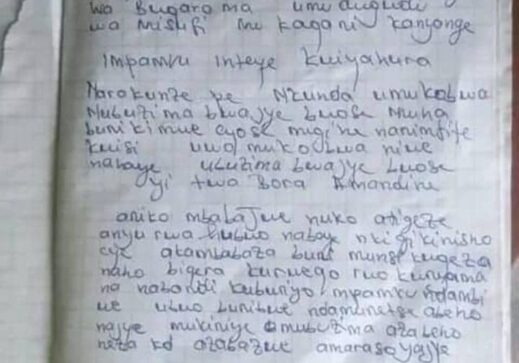 wa Bugaroma umudugudu
wa Misufi mu kagani kanyonge
Impamvu inteye kwiyahura
Narakunze pe Nkunda umukobwa
Mubuzima bwajye bwose Muha
buri kimwe cyose mugihe nanimfite
kwisi uwo mukobwa niwe
nahaye ubuzima bwajye bwose
yitwa Bora Amandine
ariko mbabajwe nuko atigeze
anyurwa hubwo nabaye nkigikinisho
cye akambabaza buri munsi kugeza
naho bigera kurwego rwo kuryama
na nabandi kuburiyo, mpamvu ndambi
we ubwo buribwe ndamunetse abeho
najye mukiniye mubuzima azabeho
neza azabazwe amaraso yajye